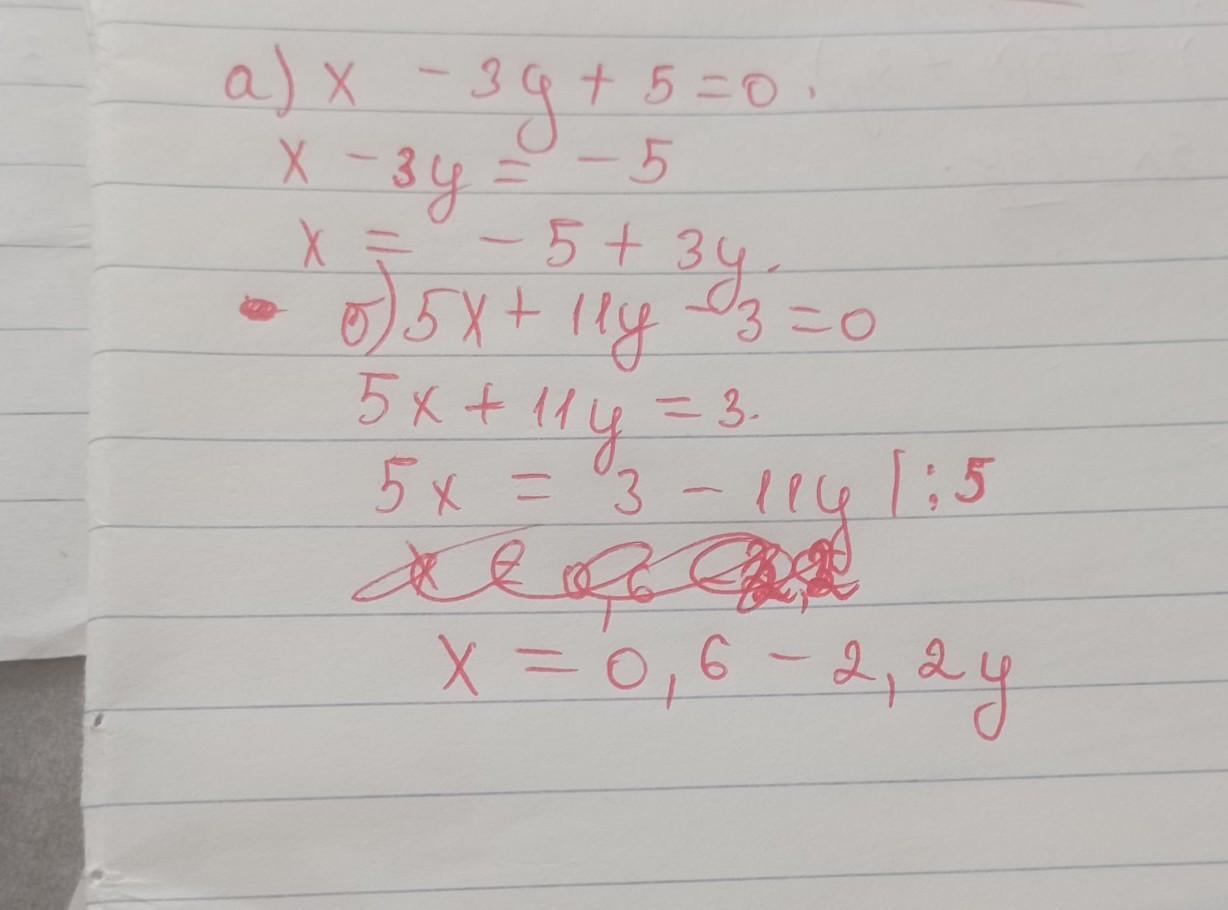 а) x - 3y + 5 = 0.
x - 3y = - 5
x = - 5 + 3y.
б) 5x + 11y - 3 = 0
5x + 11y = 3.
5x = 3 - 11y | : 5
x = 0,6 - 2,2y